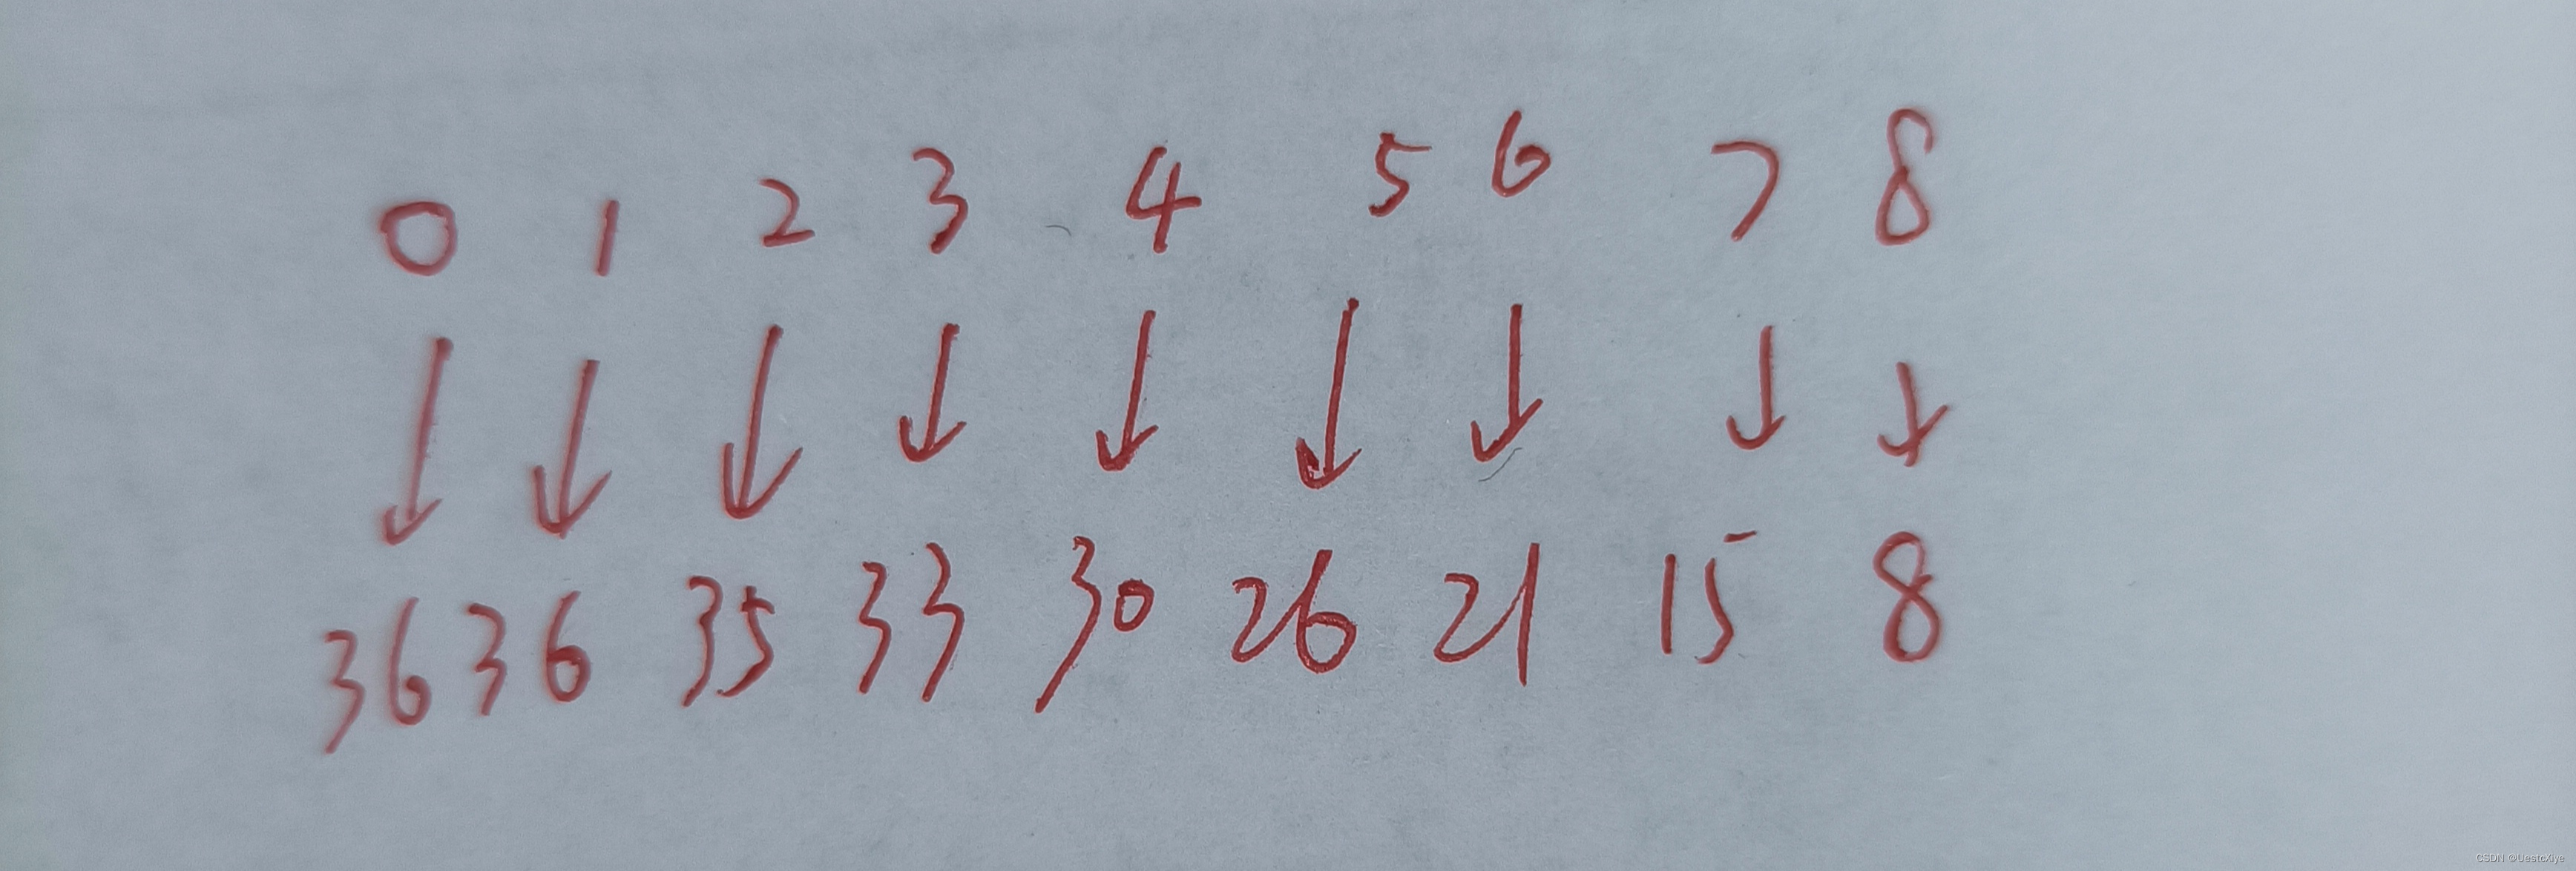 0 1 2 3 4 5 6 7 8
36 36 35 33 30 26 21 15 8
CSDN @UestcXiye